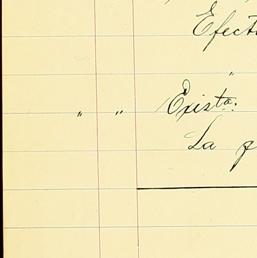 Efect
"
" " Exista.
La